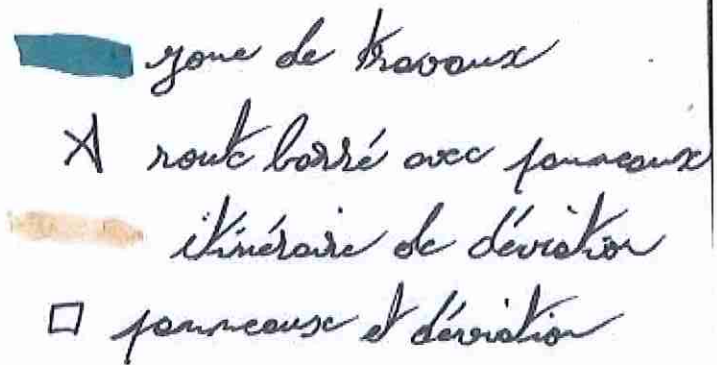 zone de travaux
route barré avec panneaux
itinéraire de déviation
panneaux et déviation